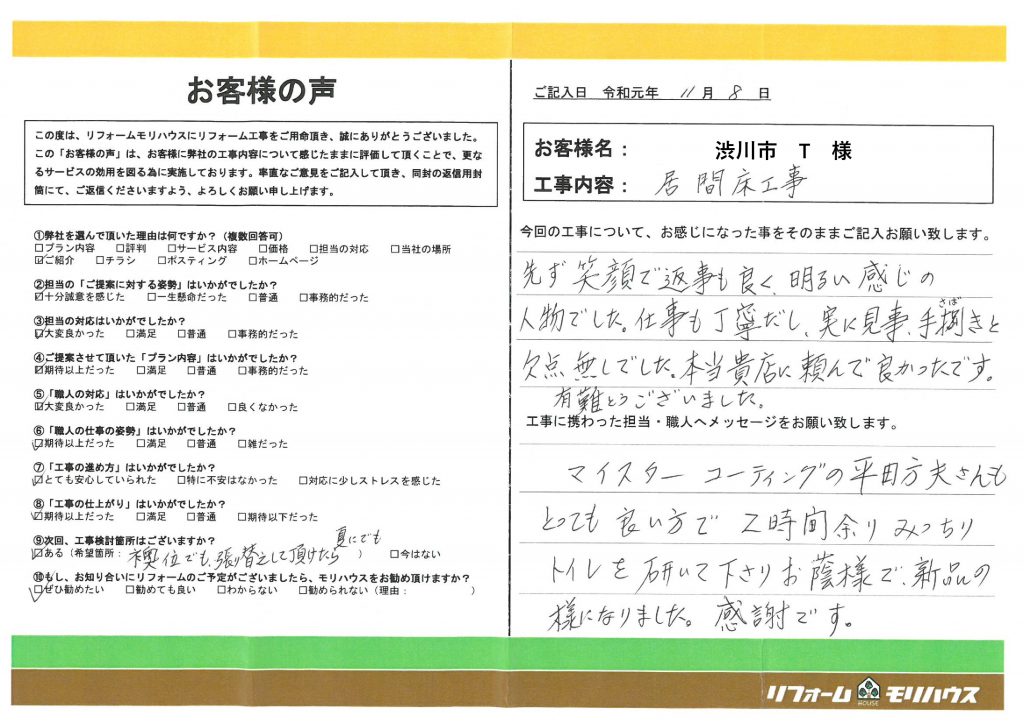 お客様の声
この度は、リフォームモリハウスにリフォーム工事をご用命頂き、誠にありがとうございました。
この「お客様の声」は、お客様に弊社の工事内容について感じたままに評価して頂くことで、更な
るサービスの効用を図る為に実施しております。率直なご意見をご記入して頂き、同封の返信用封
筒にて、ご返信くださいますよう、よろしくお願い申し上げます。
①弊社を選んで頂いた理由は何ですか？（複数回答可）
□プラン内容 □評判 □サービス内容 □価格 □担当の対応 □当社の場所
☑ご紹介 □チラシ □ポスティング □ホームページ
②担当の「ご提案に対する姿勢」はいかがでしたか？
☑十分誠意を感じた □一生懸命だった □普通 □事務的だった
③担当の対応はいかがでしたか？
☑大変良かった □満足 □普通 □事務的だった
④ご提案させて頂いた「プラン内容」はいかがでしたか？
☑期待以上だった □満足 □普通 □事務的だった
⑤「職人の対応」はいかがでしたか？
☑大変良かった □満足 □普通 □良くなかった
⑥「職人の仕事の姿勢」はいかがでしたか？
☑期待以上だった □満足 □普通 □雑だった
⑦「工事の進め方」はいかがでしたか？
☑とても安心していられた □特に不安はなかった □対応に少しストレスを感じた
⑧「工事の仕上がり」はいかがでしたか？
☑期待以上だった □満足 □普通 □期待以下だった
⑨次回、工事検討箇所はございますか？
☑ある（希望箇所：襖位でも、張り替えして頂けたら夏にでも） □今はない
⑩もし、お知り合いにリフォームのご予定がございましたら、モリハウスをお勧め頂けますか？
☑ぜひ勧めたい □勧めても良い □わからない □勧められない（理由： ）
ご記入日 令和元年 11月 8日
お客様名： 渋川市 T 様
工事内容： 居間床工事
今回の工事について、お感じになった事をそのままご記入お願い致します。
先ず笑顔で返事も良く、明るい感じの
人物でした。仕事も丁寧だし、実に見事、手捌(さば)きと
欠点無しでした。本当貴店に頼んで良かったです。
有難とうございました。
工事に携わった担当・職人へメッセージをお願い致します。
マイスターコーティングの平田方夫さんも
とっても良い方で2時間余りみっちり
トイレを研いて下さりお蔭様で、新品の
様になりました。感謝です。
リフォーム HOUSE モリハウス